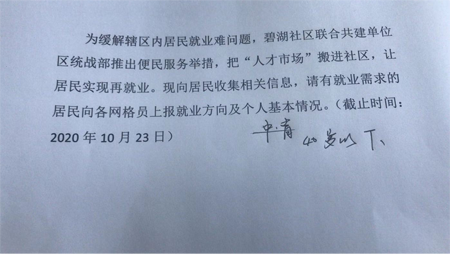 为缓解辖区内居民就业难问题，碧湖社区联合共建单位
区统战部推出便民服务举措，把“人才市场”搬进社区，让
居民实现再就业。现向居民收集相关信息，请有就业需求的
居民向各网格员上报就业方向及个人基本情况。（截止时间：
2020 年 10 月 23 日）
中青 40岁以下、